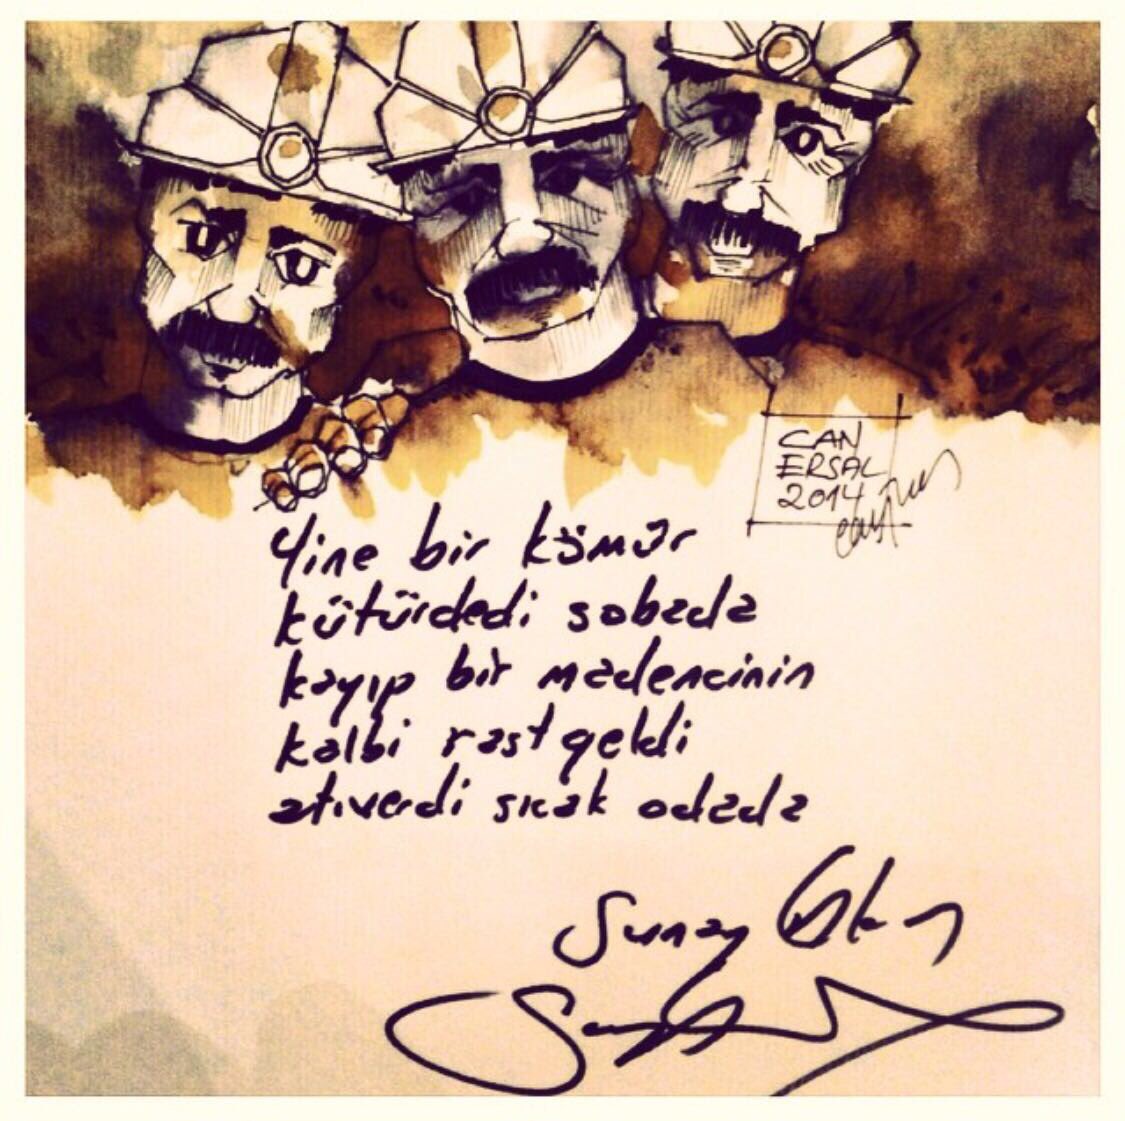 CAN
ERSAL
2014
Yine bir kömür
kütürdedi sobada
kayıp bir madencinin
kalbi rast geldi
atıverdi sıcak odada
Sunay Akın